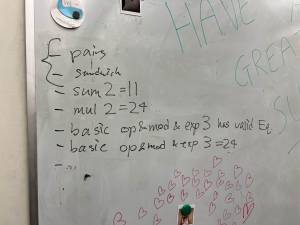 HAVE A
GREA
SU
- pairs
- sandwich
- sum 2 = 11
- mul 2 = 24
- basic op & mod & exp 3 has valid Eq
- basic op & mod & exp 3 = 24
- ...